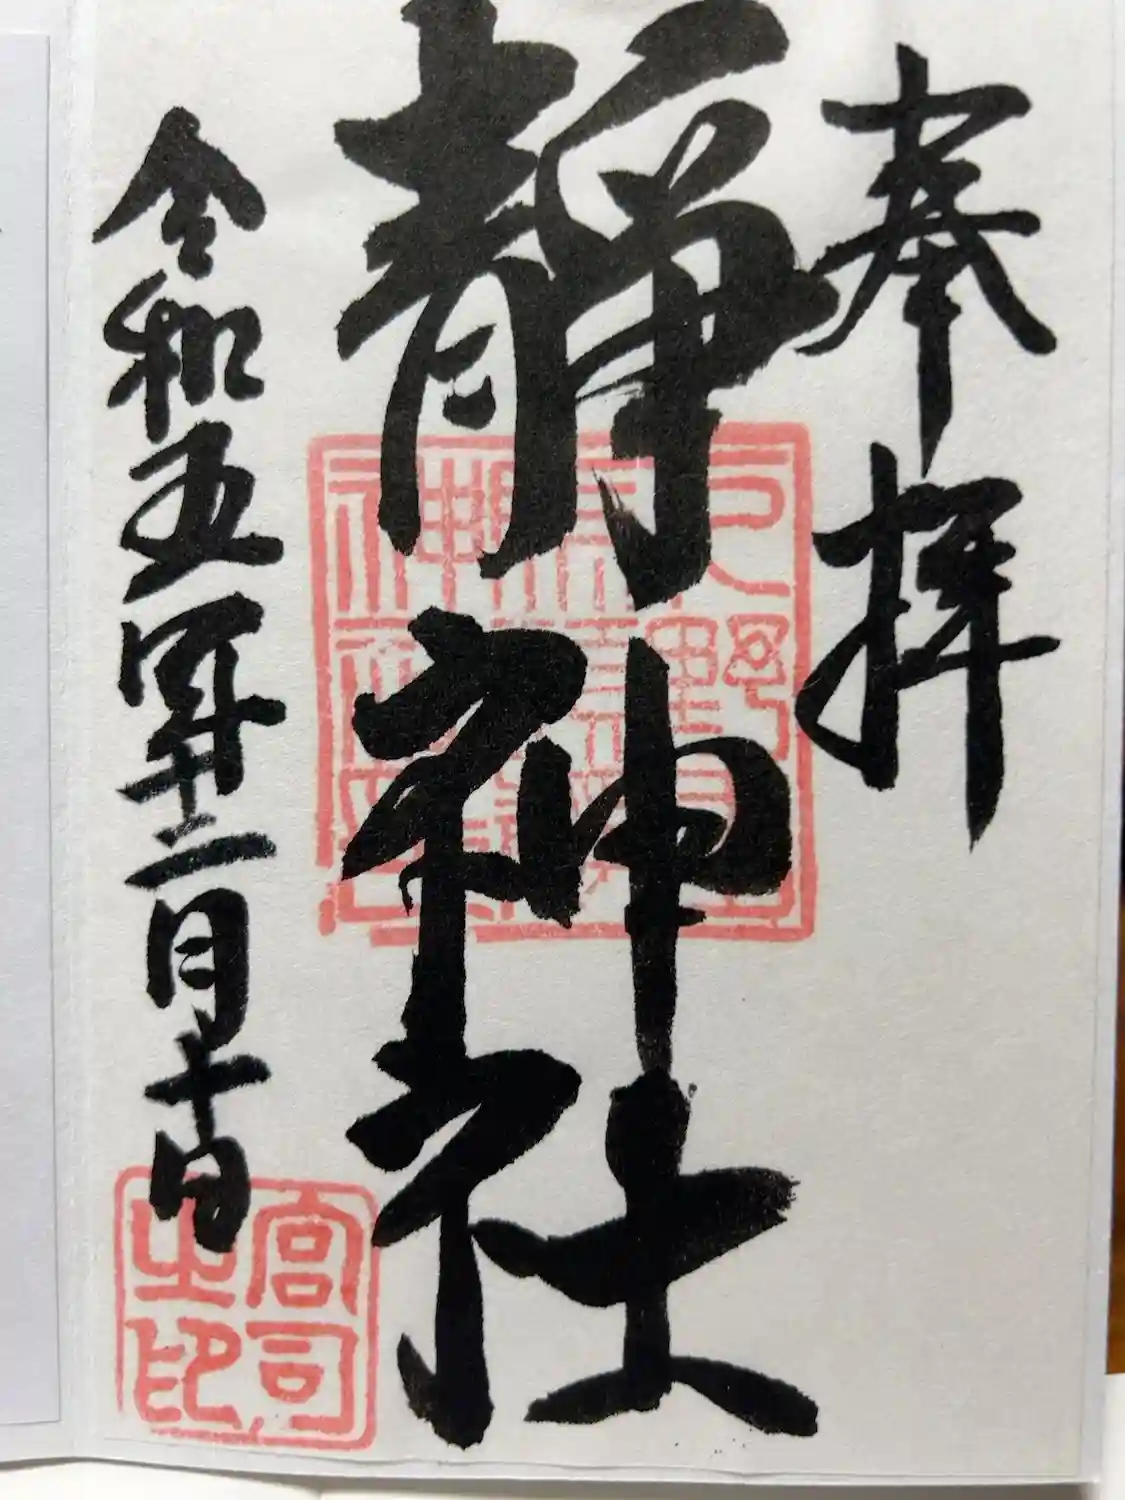 奉拝
靜神社
令和五年十二月十日
宮司
之印